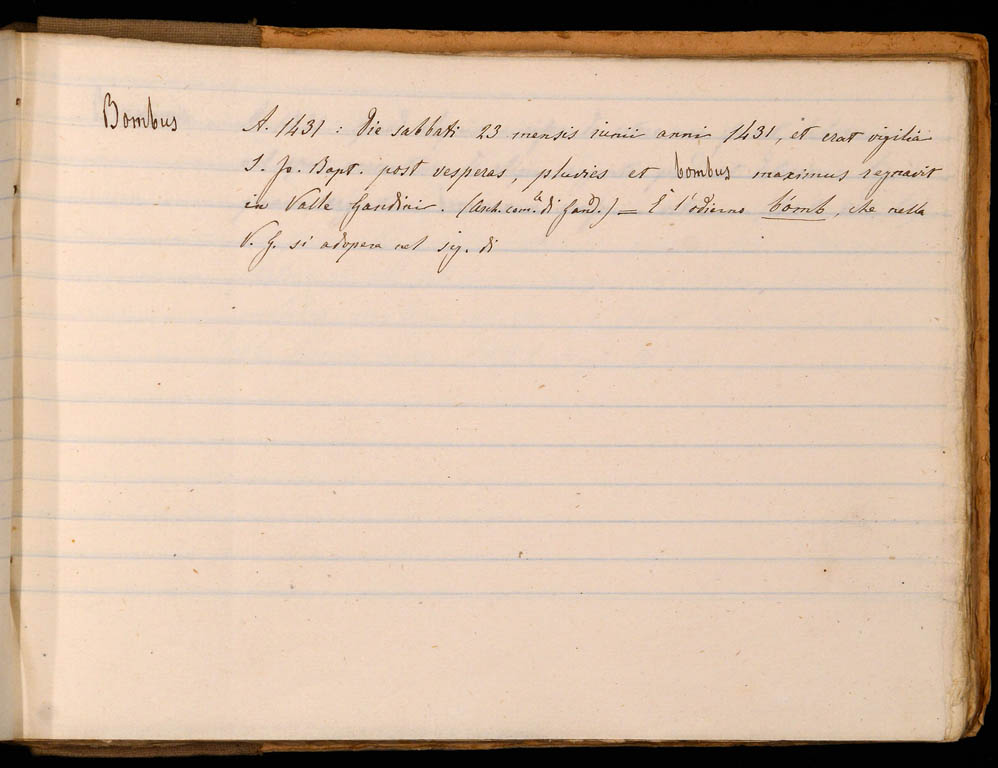 Bombus A. 1431 : Die sabbati 23 mensis iunii anni 1431, et erat vigilia
S. Jo. Bapt. post vesperas, pluvies et bombus maximus regnavit
in Valle Gandini. (Arch. com.le di Gand.) = È l'odierno bómb, che nella
V. G. si adopera nel sig. di